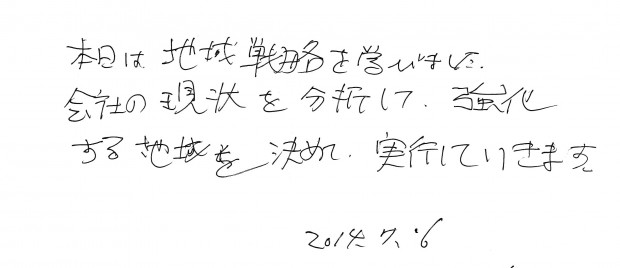 本日は地域戦略を学びました.
会社の現状を分析して、強化
する地域を決めて、実行していきます
2014.7.6